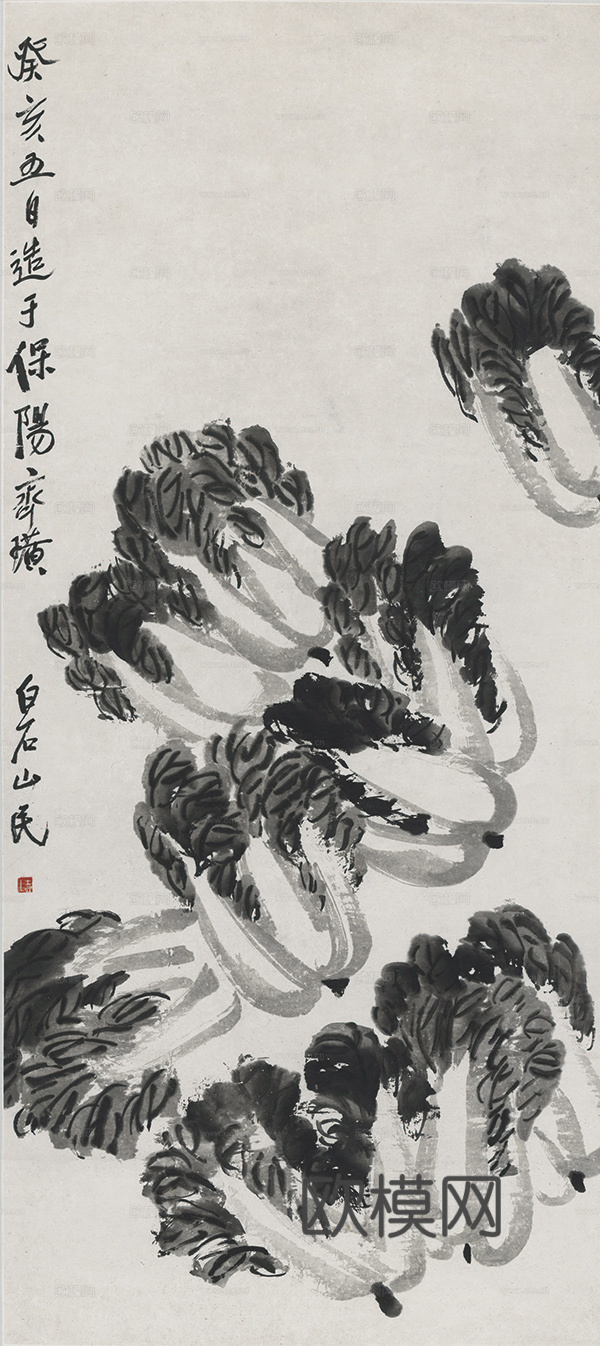 癸亥五日造于保陽齊璜
白石山民
欧模网